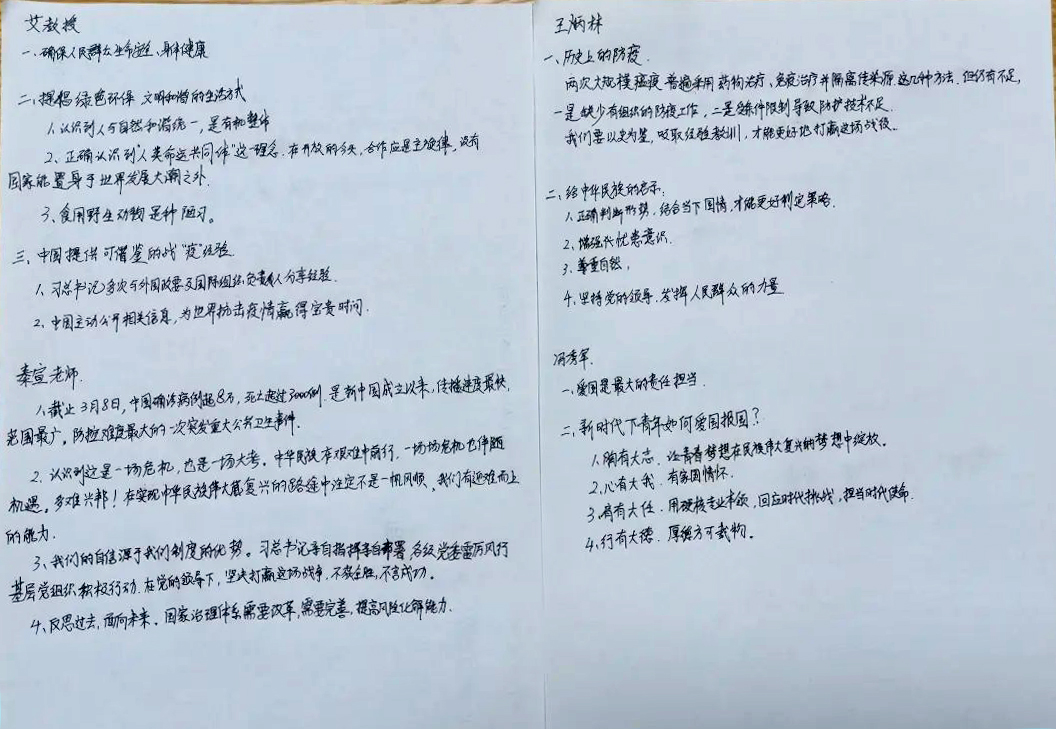 艾教授
一、确保人民群众生命安全、身体健康
二、提倡绿色环保 文明和谐的生活方式
1、认识到人与自然和谐统一，是有机整体
2、正确认识到"人类命运共同体"这一理念. 在开放的今天，合作应是主旋律，没有
国家能置身于世界发展大潮之外.
3、食用野生动物是种陋习。
三、中国提供可借鉴的战"疫"经验.
1、习总书记多次与外国政要及国际组织负责人分享经验.
2、中国主动公开相关信息，为世界抗击疫情赢得宝贵时间.
秦宣老师.
1、截止3月8日，中国确诊病例超8万，死亡超过3000例. 是新中国成立以来，传播速度最快，
范围最广，防控难度最大的一次突发重大公共卫生事件.
2、认识到这是一场危机，也是一场大考。中华民族在艰难中前行，一场场危机也伴随
机遇。多难兴邦！在实现中华民族伟大复兴的路途中注定不是一帆风顺，我们有迎难而上
的能力.
3、我们的自信源于我们制度的优势。习总书记亲自指挥亲自部署，各级党委雷厉风行
基层党组织积极行动. 在党的领导下，坚决打赢这场战争，不获全胜，不言成功。
4、反思过去，面向未来。国家治理体系需要改革，需要完善，提高风险化解能力.
王炳林
一、历史上的防疫.
两次大规模瘟疫 普遍采用药物治疗，免疫治疗并隔离传染源 这几种方法. 但仍有不足，
一是缺少有组织的防疫工作，二是受条件限制导致防护技术不足.
我们要以史为鉴，吸取经验教训，才能更好地打赢这场战役。
二、给中华民族的启示：
1、正确判断形势，结合当下国情，才能更好制定策略.
2、增强忧患意识.
3、尊重自然，
4、坚持党的领导，发挥人民群众的力量
冯秀军.
一、爱国是最大的责任担当.
二、新时代下青年如何爱国报国？
1、胸有大志. 让青春梦想在民族伟大复兴的梦想中绽放。
2、心有大我. 有家国情怀.
3、肩有大任. 用硬核专业本领，回应时代挑战，担当时代使命.
4、行有大德. 厚德方可载物。